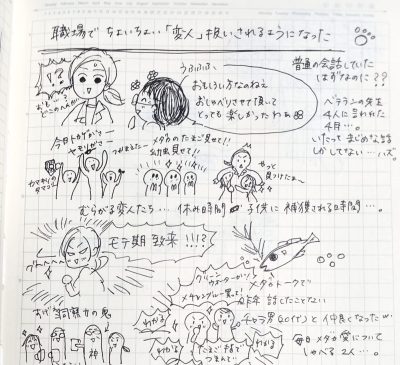 職場で ちょいちょ…「変人」扱いされるようになった
うふふふ、
おもしろい方なのねえ
おしゃべりさせて頂いて
とっても楽しかったわぁ
普通の会話していた
はずなのに??
ベテランの先生
4人に言われた
4月…。
いたって まじめな話
しかしてない…ハズ。
今日トカゲが〜
ヤモリが〜
つかまえた〜
メダカの たまご見せて!!
幼虫見せて!!
やっと
見つけたぁ〜
カマキリの
タマゴ
むらがる変人たち… 休み時間 子供に 捕獲される時間…。
モテ期 到来 !!!?
グリーン
ウォーターがッ!
メチャンブルー買って!
メダカトークで
昨年 話したことない
チャラ男 と 仲良くなったw
毎日 メダカ愛について
しゃべる 2人…。
わかる
わかる
わかる
たまご 指で
つまんで
神